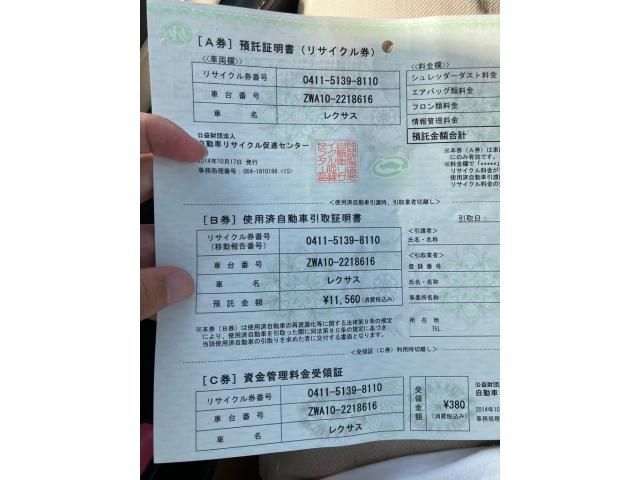 ［A券］預託証明書（リサイクル券）
<<車両欄>>
リサイクル券番号 0411-5139-8110
車台番号 ZWA10-2218616
車名 レクサス
<<料金欄>>
シュレッダーダスト料金
エアバッグ類料金
フロン類料金
情報管理料金
預託金額合計
公益財団法人
自動車リサイクル促進センター
2014年10月17日 発行
事務処理番号：004-1810198 <1S>
※本券（A券）は車
にのみ有効です。
※料金欄で「*****」
リサイクル料金が
使用済自動車引渡
リサイクル料金の
<使用済自動車引渡時、引取業者切離し>
［B券］使用済自動車引取証明書
引取日：
リサイクル券番号
（移動報告番号） 0411-5139-8110
車台番号 ZWA10-2218616
車名 レクサス
預託金額 ¥11,560（消費税込み）
<引渡者>
氏名・名称
<引取業者>
登録番号
氏名・名称
事業所名称
所在地
TEL
※本券（B券）は使用済自動車の再資源化等に関する法律第9条の規定
により、使用済自動車を引取った際に同法第80条の規定に基づき、
当該使用済自動車の引取りを求めた者に交付する書面となります。
<受領証（C券）利用時切離し>
［C券］資金管理料金受領証
リサイクル券番号 0411-5139-8110
車台番号 ZWA10-2218616
車名 レクサス
受領金額 ¥380
（消費税込み）
公益財団
自動車
2014年10
事務処理